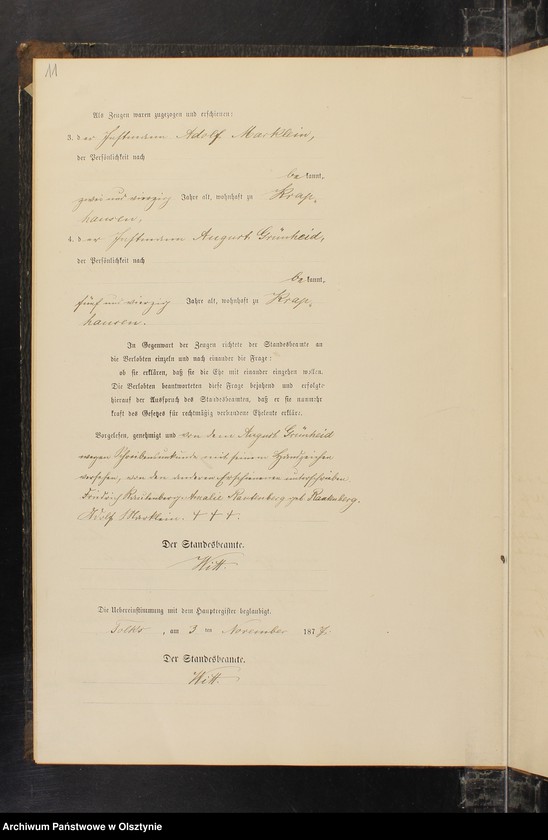 11
Als Zeugen waren zugezogen und erschienen:
3. der Instmann Adolf Marklein,
der Persönlichkeit nach
bekannt,
zwei und vierzig Jahre alt, wohnhaft zu Krap-
hausen.
4. der Instmann August Grünheid,
der Persönlichkeit nach
bekannt,
fünf und vierzig Jahre alt, wohnhaft zu Krap-
hausen.
In Gegenwart der Zeugen richtete der Standesbeamte an
die Verlobten einzeln und nach einander die Frage:
ob sie erklären, daß sie die Ehe mit einander eingehen wollen.
Die Verlobten beantworteten diese Frage bejahend und erfolgte
hierauf der Ausspruch des Standesbeamten, daß er sie nunmehr
kraft des Gesetzes für rechtmäßig verbundene Eheleute erkläre.
Vorgelesen, genehmigt und von dem August Grünheid
wegen Schreibensunkunde mit seinem Handzeichen
versehen, von den anderen Erschienenen unterschrieben
Friedrich Rautenberg. Amalie Rautenberg geb Rautenberg.
Adolf Marklein. + + +.
Der Standesbeamte.
Witt.
Die Uebereinstimmung mit dem Hauptregister beglaubigt.
Tolks, am 3 ten November 1877.
Der Standesbeamte.
Witt.
Archiwum Państwowe w Olsztynie